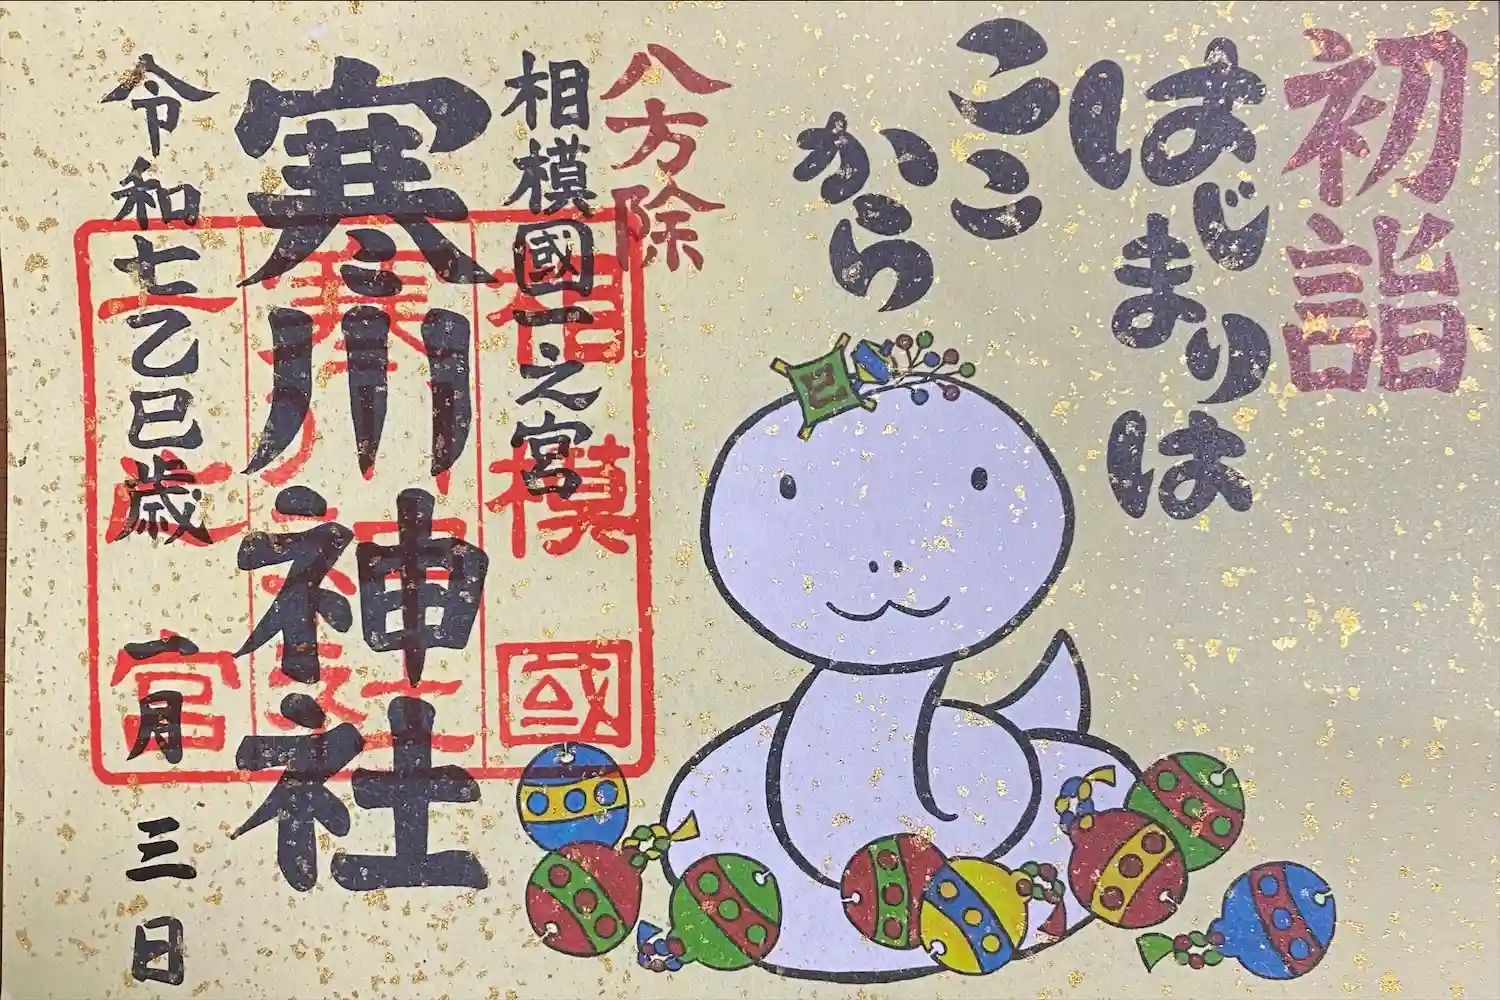 初詣
はじまりは
ここ
から
八方除
相模國一之宮
寒川神社
令和七乙巳歳 一月 三日
相模國
寒川神社
一之宮
己